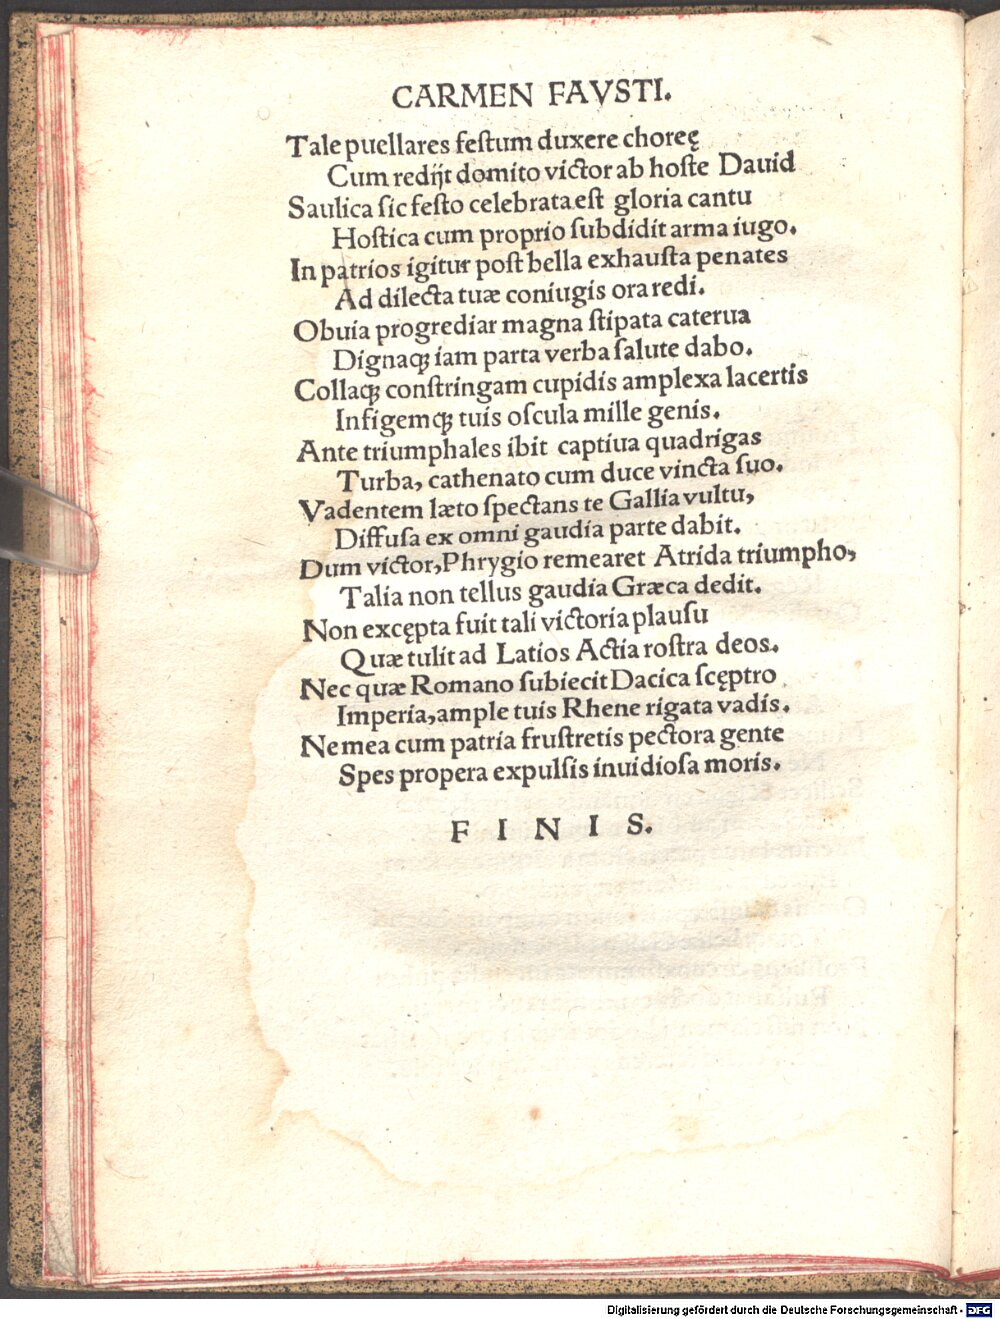 CARMEN FAVSTI.
Tale puellares festum duxere choreę
Cum redijt domito victor ab hoste Dauid
Saulica sic festo celebrata est gloria cantu
Hostica cum proprio subdidit arma iugo.
In patrios igitur post bella exhausta penates
Ad dilecta tuæ coniugis ora redi.
Obuia progrediar magna stipata caterua
Dignaqꝫ iam parta verba salute dabo.
Collaqꝫ constringam cupidis amplexa lacertis
Infigemqꝫ tuis oscula mille genis.
Ante triumphales ibit captiua quadrigas
Turba, cathenato cum duce vincta suo.
Vadentem læto spectans te Gallia vultu,
Diffusa ex omni gaudia parte dabit.
Dum victor, Phrygio remearet Atrida triumpho,
Talia non tellus gaudia Græca dedit.
Non excępta fuit tali victoria plausu
Quæ tulit ad Latios Actia rostra deos.
Nec quæ Romano subiecit Dacica scęptro
Imperia, ample tuis Rhene rigata vadis.
Ne mea cum patria frustretis pectora gente
Spes propera expulsis inuidiosa moris.
FINIS.
Digitalisierung gefördert durch die Deutsche Forschungsgemeinschaft - DFG